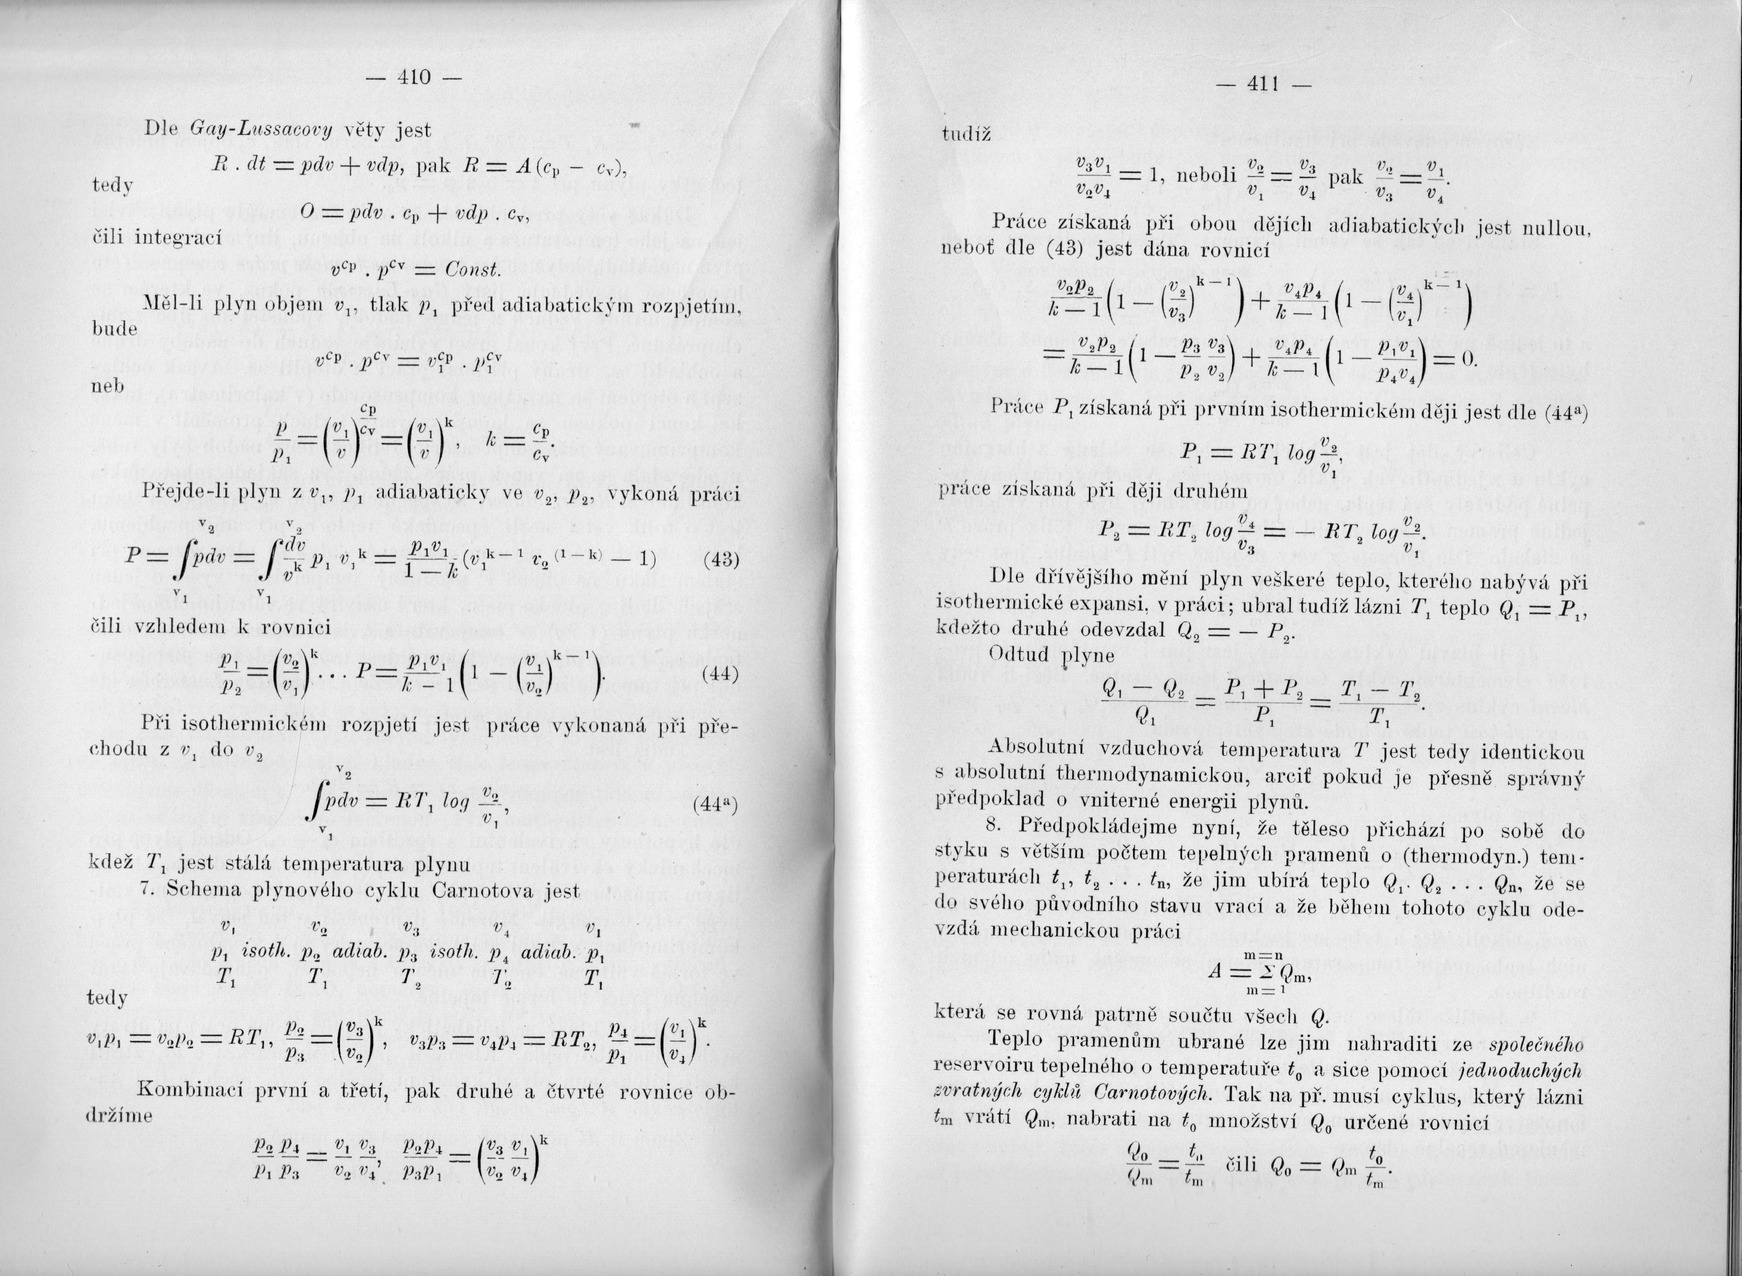 — 410 —
Dle Gay-Lussacovy věty jest
R . dt = pdv + vdp, pak R = A (c_p − c_v),
tedy
O = pdv . c_p + vdp . c_v,
čili integrací
v^{c_p} . p^{c_v} = Const.
Měl-li plyn objem v_1, tlak p_1 před adiabatickým rozpjetím,
bude
v^{c_p} . p^{c_v} = v_1^{c_p} . p_1^{c_v}
neb
p/p_1 = (v_1/v)^{c_p/c_v} = (v_1/v)^k, k = c_p/c_v.
Přejde-li plyn z v_1, p_1 adiabaticky ve v_2, p_2, vykoná práci
P = ∫_{v_1}^{v_2} pdv = ∫_{v_1}^{v_2} dv/v^k p_1 v_1^k = p_1v_1/(1 — k) . (v_1^{k − 1} v_2^{(1 − k)} — 1) (43)
čili vzhledem k rovnici
p_1/p_2 = (v_2/v_1)^k . . . P = p_1v_1/(k − 1) (1 − (v_1/v_2)^{k − 1}). (44)
Při isothermickém rozpjetí jest práce vykonaná při pře-
chodu z v_1 do v_2
∫_{v_1}^{v_2} pdv = RT_1 log v_2/v_1, (44a)
kdež T_1 jest stálá temperatura plynu
7. Schema plynového cyklu Carnotova jest
v_1 v_2 v_3 v_4 v_1
p_1 isoth. p_2 adiab. p_3 isoth. p_4 adiab. p_1
T_1 T_1 T_2 T_2 T_1
tedy
v_1p_1 = v_2p_2 = RT_1, p_2/p_3 = (v_3/v_2)^k, v_3p_3 = v_4p_4 = RT_2, p_4/p_1 = (v_1/v_4)^k.
Kombinací první a třetí, pak druhé a čtvrté rovnice ob-
držíme
p_2 p_4/p_1 p_3 = v_1 v_3/v_2 v_4, p_2p_4/p_3p_1 = (v_3 v_1/v_2 v_4)^k
— 411 —
tudíž
v_3v_1/v_2v_4 = 1, neboli v_2/v_1 = v_3/v_4 pak v_2/v_3 = v_1/v_4.
Práce získaná při obou dějích adiabatických jest nullou,
neboť dle (43) jest dána rovnicí
v_2p_2/(k — 1) (1 — (v_2/v_3)^{k − 1}) + v_4p_4/(k — 1) (1 — (v_4/v_1)^{k − 1})
= v_2p_2/(k — 1) (1 — p_3 v_3/p_2 v_2) + v_4p_4/(k — 1) (1 — p_1v_1/p_4v_4) = 0.
Práce P_1 získaná při prvním isothermickém ději jest dle (44a)
P_1 = RT_1 log v_2/v_1,
práce získaná při ději druhém
P_2 = RT_2 log v_4/v_3 = — RT_2 log v_2/v_1.
Dle dřívějšího mění plyn veškeré teplo, kterého nabývá při
isothermické expansi, v práci; ubral tudíž lázni T_1 teplo Q_1 = P_1,
kdežto druhé odevzdal Q_2 = — P_2.
Odtud plyne
(Q_1 — Q_2)/Q_1 = (P_1 + P_2)/P_1 = (T_1 — T_2)/T_1.
Absolutní vzduchová temperatura T jest tedy identickou
s absolutní thermodynamickou, arciť pokud je přesně správný
předpoklad o vniterné energii plynů.
8. Předpokládejme nyní, že těleso přichází po sobě do
styku s větším počtem tepelných pramenů o (thermodyn.) tem-
peraturách t_1, t_2 . . . t_n, že jim ubírá teplo Q_1. Q_2 . . . Q_n, že se
do svého původního stavu vrací a že během tohoto cyklu ode-
vzdá mechanickou práci
m=n
A = Σ Q_m,
m=1
která se rovná patrně součtu všech Q.
Teplo pramenům ubrané lze jim nahraditi ze společného
reservoiru tepelného o temperatuře t_0 a sice pomocí jednoduchých
zvratných cyklů Carnotových. Tak na př. musí cyklus, který lázni
t_m vrátí Q_m, nabrati na t_0 množství Q_0 určené rovnicí
Q_0/Q_m = t_0/t_m čili Q_0 = Q_m t_0/t_m.